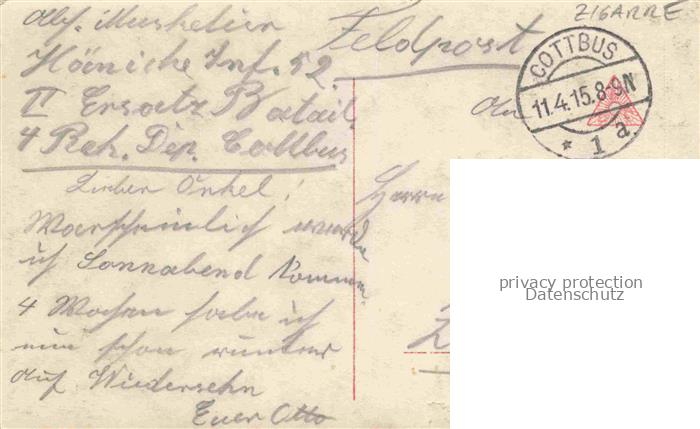 Abs. Musketier
Hänicke Inf. 52.
II Ersatz Batail.
4 Rek. Dep. Cottbus
ZIGARRE
Feldpost
COTTBUS
11.4.15.8-9N
* 1 a.
An
Herrn
Lieber Onkel!
Warscheinlich werde
ich Sonnabend kommen.
4 Wochen habe ich
nun schon runter
auf Wiedersehn
Euer Otto
Z
privacy protection
Datenschutz